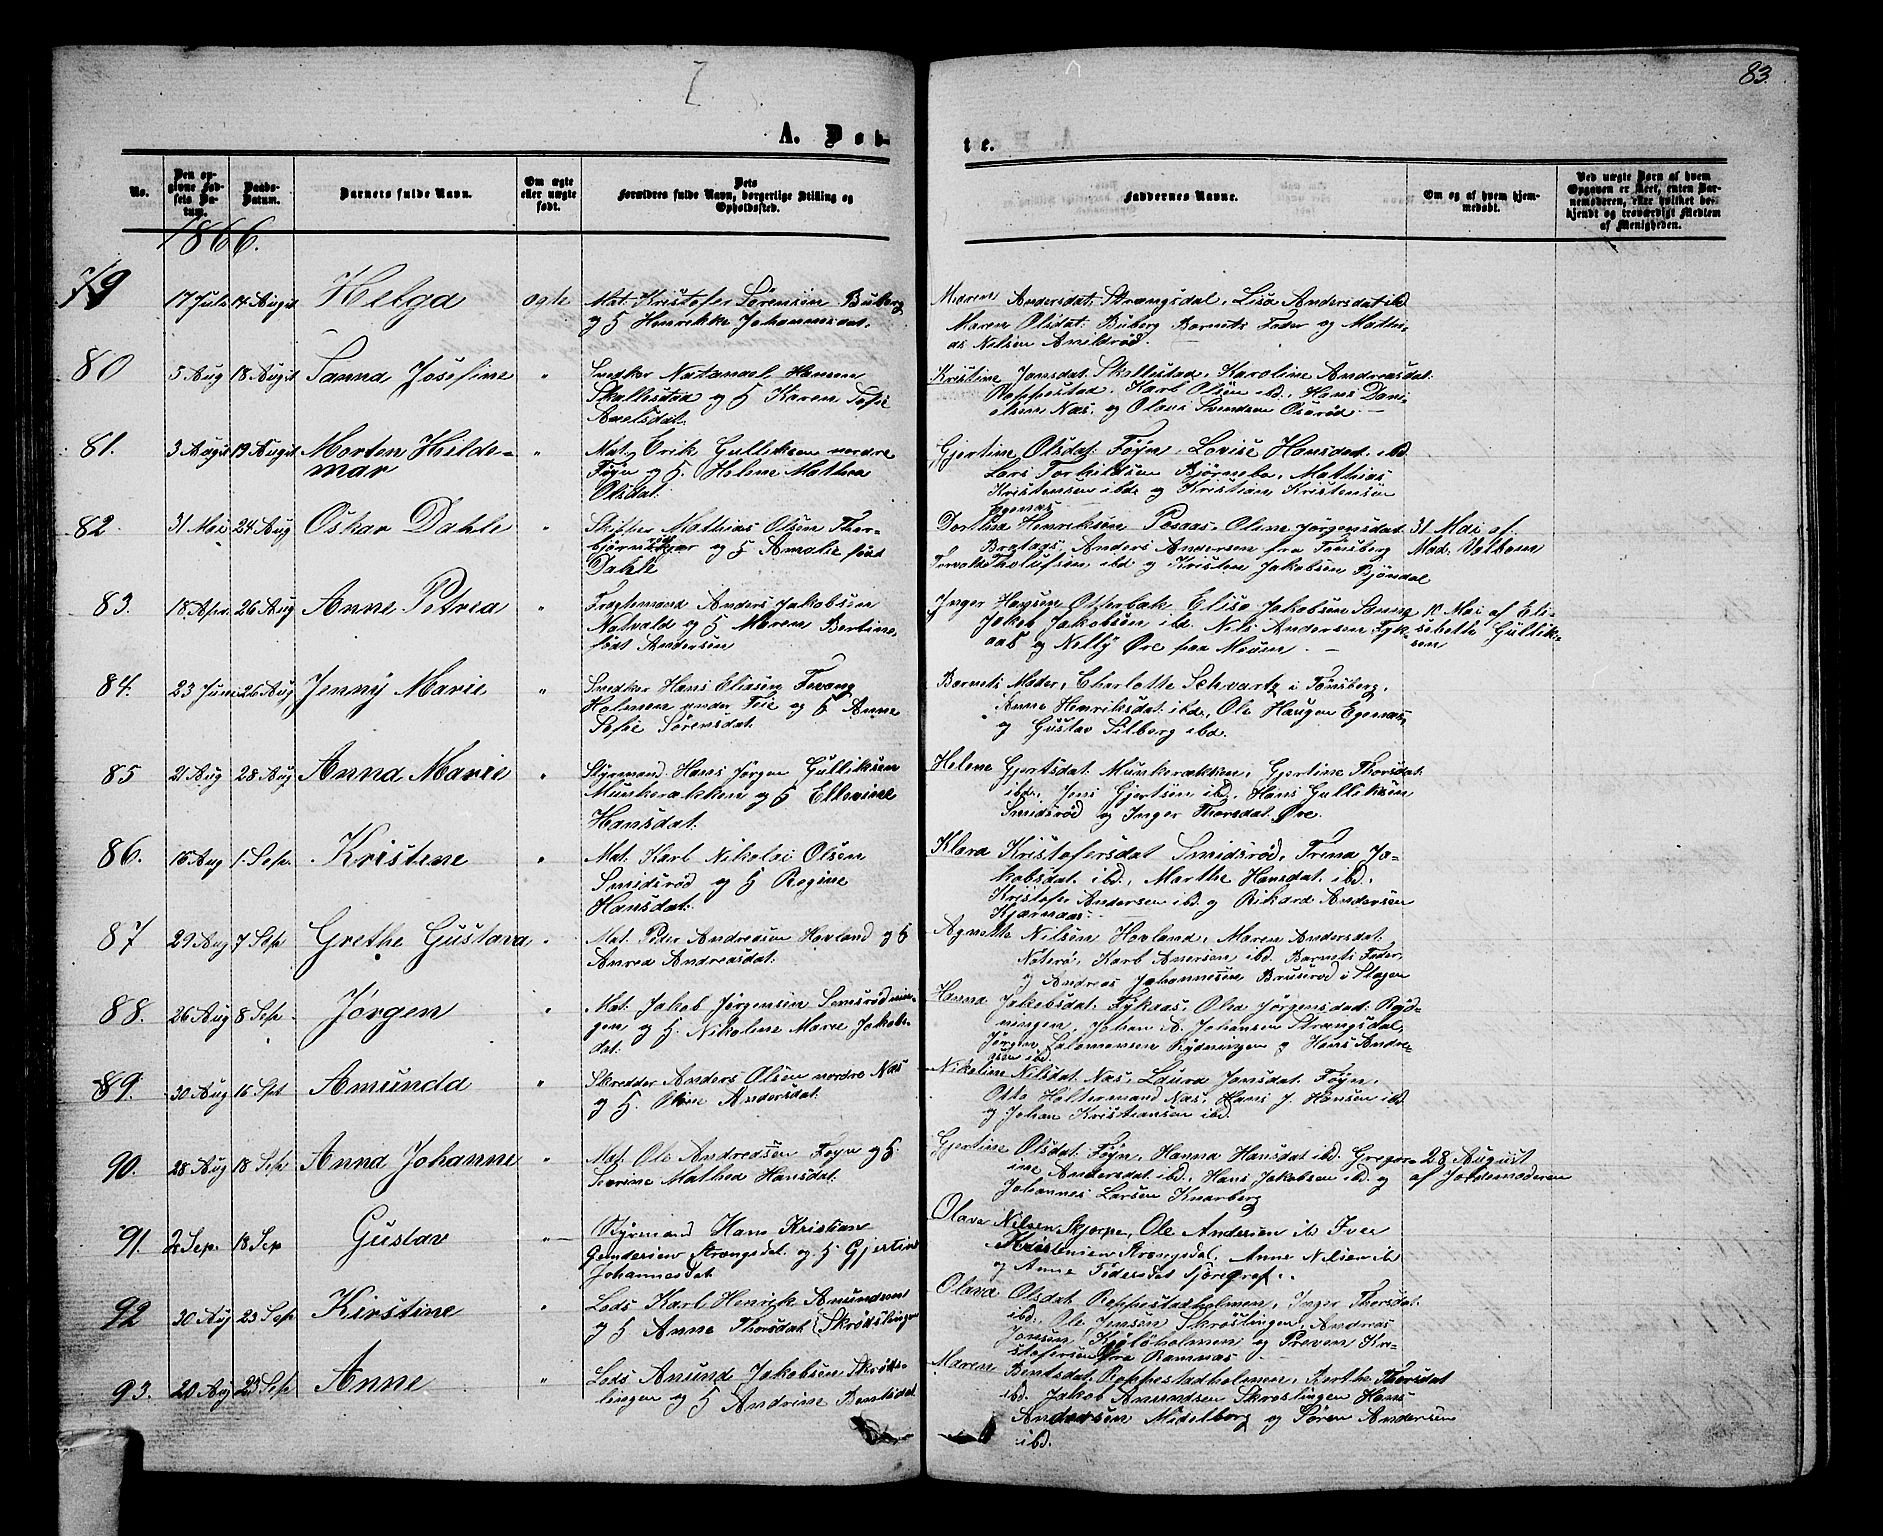 83.
A. Døb-
te.
No.
Den opgivne Fødsets Datum.
Daabs-Datum.
Barnets fulde Navn.
Om ægte eller uægte født.
Dets Forældres fulde Navn, borgerlige Stilling og Opholdssted.
Faddernes Navne.
Om og af hvem hjemmedøbt.
Ved uægte Børn af hvem Opgaven er skeet, enten Barnemoderen, eller hvilket bekjendt og troværdigt Medlem af Menigheden.
1866.
79 17 Juli 14 Augst Helga ægte Mat. Kristofer Sørensen Buberg
og H Henrikke Johannesdat.
Maren Andersdat: Strængsdal, Lisa Andersdat ibd
Maren Olsdat: Buberg Barnets Fader og Mathi-
as Nilsen Arildrød.
80 5 Aug 18 Augst Sanna Josefine " Snedker Natanael Hansen
Skallestad og H Karen Sofie
Axelsdat.
Kristine Jonsdat. Skallestad, Karoline Andreasdat:
Roppestad, Karl Olsen ibd., Hans Dani-
elsen Næs, og Olaus Svendsen Oserød.
81. 3 Augst 19 Augst Morten Hilde-
mar " Mat. Erik Gulliksen nordre
Føyn og H. Helene Mathea
Olsdat.
Gjertine Olsdat: Føyn, Lovise Hansdat. ibd.
Lars Torkildsen Bjørnebo, Mathias
Kristensen ibd. og Kristian Kristensen
Egenæs
82. 31 Mai 24 Aug Oskar Dahle " Skipper Mathias Olsen Thor-
bjørnskjær og H Amalie født
Dahle
Dortea Henriksen Paaske, Oline Jørgensdat
Brataas, Anders Andersen fra Tønsberg
Torvald Tholufsen ibd og Kristen Jakobsen Bjøndal
31 Mai af
Mad. Valbom
83. 18 Apr. 26 Aug Anne Petrea " Fragtemand Anders Jakobsen
Natvald og H Maren Bertine
født Andersen
Inger Hansen Otterbæk Elisa Jakobsen Sanne
Jakob Jakobsen ibd. Nils Andersen Fyk-
aas og Nelly Øre paa Meum.
10 Mai af Eli-
sabeth Gullik-
sen
84. 23 Juni 26 Aug Jenny Marie " Snedker Hans Eliasen Fevang
Holmen under Teie og H Anne
Sofie Sørensdat.
Barnets Moder, Charlotte Schvartz i Tønsberg,
Anne Henriksdat ibd., Ole Haugen Egenæs,
og Gustav Silberg ibd.
85 21 Aug 28 Aug Anna Marie " Styrmand Hans Jørgen Gulliksen
Munkerækken og H Ellevine
Hansdat.
Helene Gjertsdat: Munkerækken, Gjertine Thorsdat.
ibd., Jens Gjertsen ibd., Hans Gulliksen
Smidsrød og Inger Thorsdat. Øre.
86. 16 Aug 1. Sep. Kristine " Mat. Karl Nikolai Olsen
Smidsrød og H Regine
Hansdat.
Klara Kristofersdat Smidsrød, Trena Ja-
kobsdat. ibd., Marthe Hansdat. ibd.,
Kristofer Andersen ibd. og Rikard Andersen
Kjærnaas
87 29 Aug 7 Sep Grethe Gustava " Mat. Peder Andreasen Hovland og H
Anrea Andreasdat.
Agnethe Nilsen Hovland, Maren Andersdat.
Noterø, Karl Anersen ibd. Barnets Fader,
og Andreas Johannesen Bruserød i Slagen
88. 26 Aug 8 Sep Jørgen " Mat. Jakob Jørgensen Semsrød min-
gen og H. Nikoline Marie Jakobs-
dat.
Hanna Jakobsdat: Fykaas, Olea Jørgensdat: Ryd-
ningen, Johan A. Johansen Strængsdal,
Jørgen Salomonsen Rydningen og Hans Andre-
asen ibd.
89. 30 Aug 16 Sept Amunda " Skredder Anders Olsen nordre Næs
og H. Oline Andersdat.
Nikoline Nilsdat. Næs, Laura Jonsdat. Føyn,
Otto Holtermand Næs, Hans J. Hansen ibd
og Johan Kristiansen ibd.
90. 28 Aug 18 Sep Anna Johanne " Mat. Ole Andreasen Føyn og H.
Severine Mathea Hansdat.
Gjertine Olsdat: Føyn, Hanna Hansdat ibd. Gregor-
ine Andersdat ibd., Hans Jakobsen ibd. og
Johannes Larsen Knarberg
28 August
af Jordemoderen
91. 2 Sep. 18 Sep Gustav " Styrmand Hans Kristian
Gundersen Strængsdal. og H Gjertine
Johannesdat
Olava Nilsen Skjerpe, Ole Andersen ib Iver
Kristensen Strængsdal, Anne Nilsen ib
og Anne Pedersdat Sjøregref.
92 30 Aug 23 Sep Kirstine " Lods Karl Henrik Amundsen
og H Anne Thorsdat (Skrøslingen
Olava Olsdat: Roppestadholmen, Inger Thorsdat
ibd., Ole Jensen Skrøslingen, Andreas
Jonsen Kjøløholmen og Preven Kri-
stofersen fra Ramnæs.
93. 20 Aug 23 Sep Anne " Lods Amund Jakobsen Skrøs-
lingen og H Andrine Bentsdat
Maren Bentsdat Roppestadholmen, Berthe Thorsdat
ibd. Jakob Amundsen Skrøslingen Hans
Andersen Midelborg og Søren Andersen
ibd.